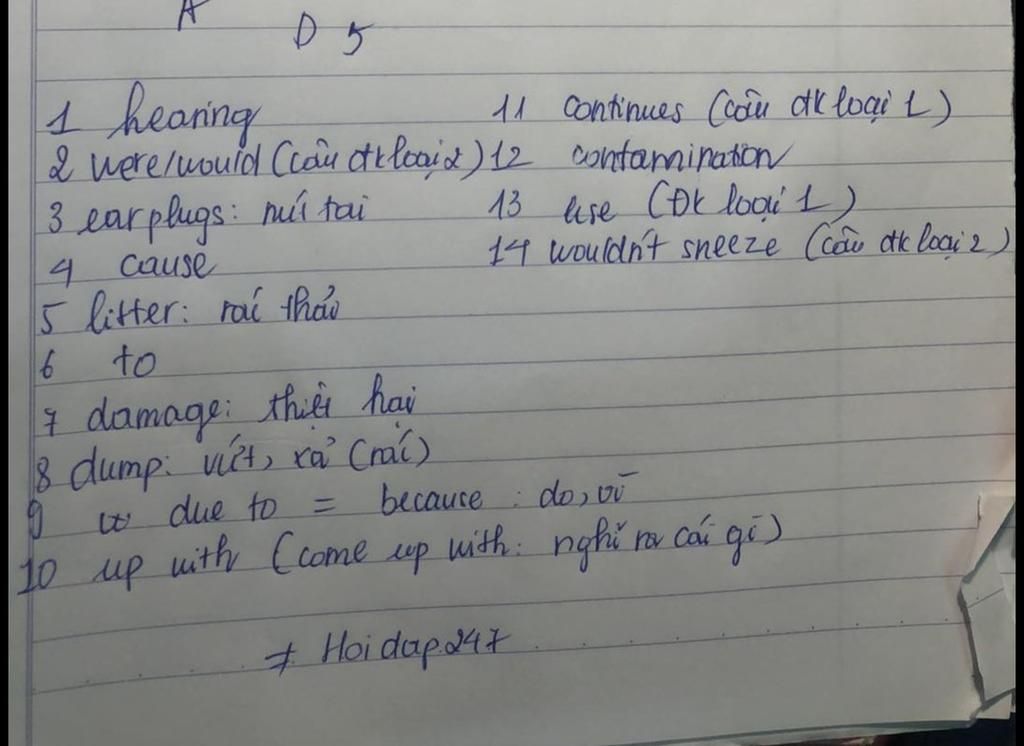 A
D 5
1 hearing
2 were/would (câu đk loại 2)
3 earplugs: nút tai
4 cause
5 litter: rác thải
6 to
7 damage: thiệt hại
8 dump: vứt, xả (rác)
9 due to = because : do, vì
10 up with (come up with: nghĩ ra cái gì)
11 continues (câu đk loại 1)
12 contamination
13 use (Đk loại 1)
14 wouldn't sneeze (câu đk loại 2)
Hoidap247